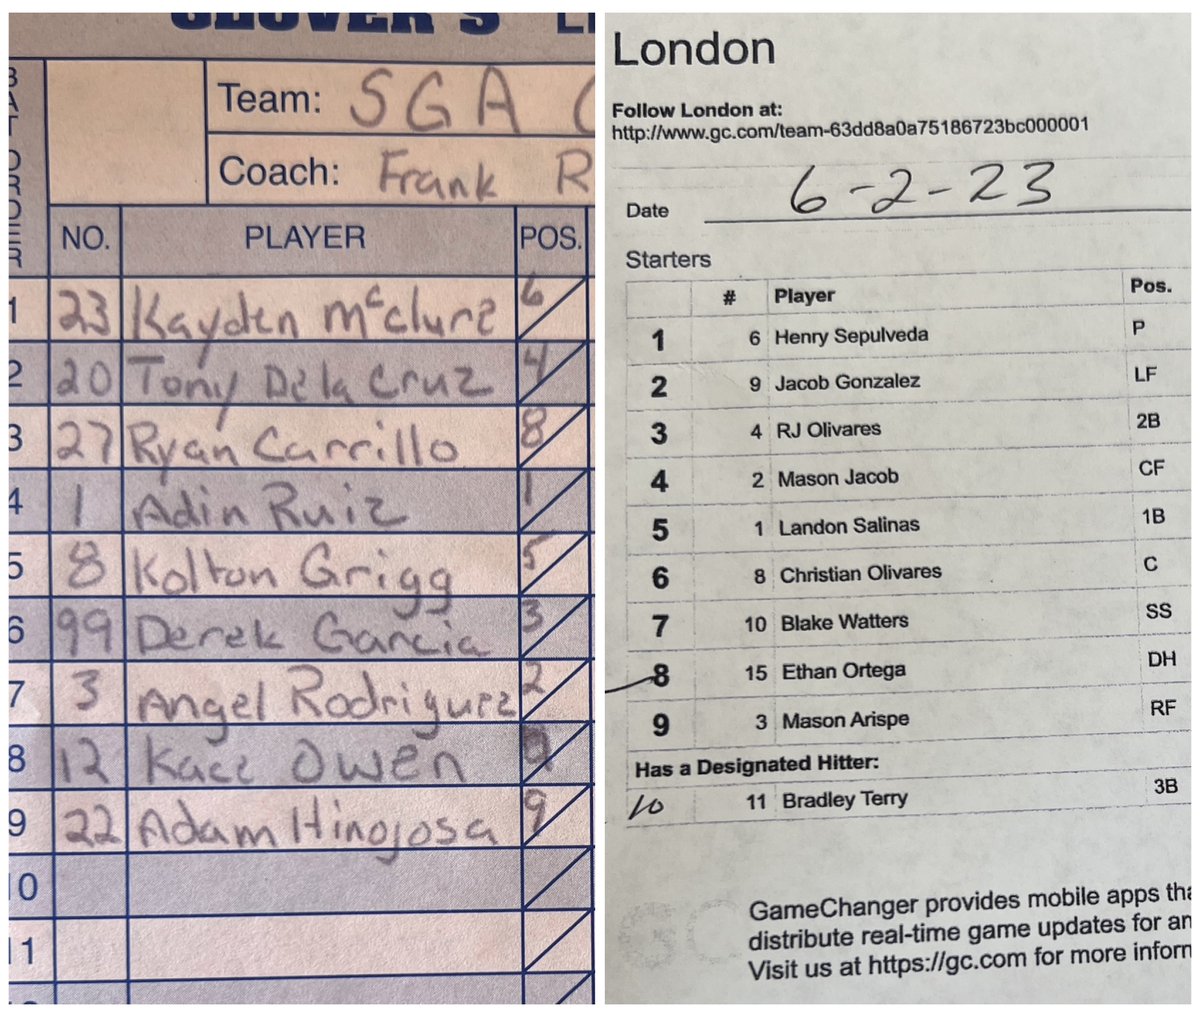 GLOVER'S
BAT ORDER
Team: SGA
Coach: Frank R
NO. PLAYER POS.
1 23 Kayden McClure 6
2 20 Tony De la Cruz 4
3 27 Ryan Carrillo 8
4 1 Adin Ruiz 1
5 8 Kolton Grigg 5
6 99 Derek Garcia 3
7 3 Angel Rodriguez 2
8 12 Kace Owen
9 22 Adam Hinojosa 9
10
11
London
Follow London at:
http://www.gc.com/team-63dd8a0a75186723bc000001
Date 6-2-23
Starters
# Player Pos.
1 6 Henry Sepulveda P
2 9 Jacob Gonzalez LF
3 4 RJ Olivares 2B
4 2 Mason Jacob CF
5 1 Landon Salinas 1B
6 8 Christian Olivares C
7 10 Blake Watters SS
8 15 Ethan Ortega DH
9 3 Mason Arispe RF
Has a Designated Hitter:
10 11 Bradley Terry 3B
GC
GameChanger provides mobile apps tha
distribute real-time game updates for an
Visit us at https://gc.com for more inform